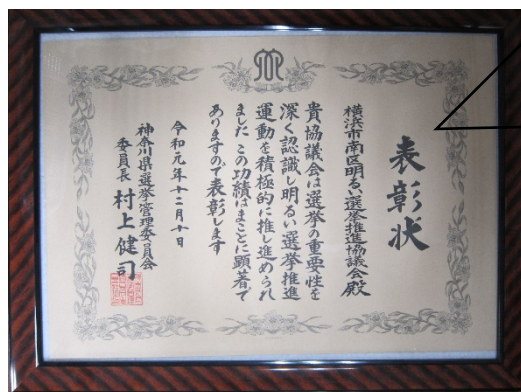 表彰状
横浜市南区明るい選挙推進協議会殿
貴協議会は選挙の重要性を
深く認識し明るい選挙推進
運動を積極的に推し進められ
ました この功績はまことに顕著で
ありますので表彰します
令和元年十二月十日
神奈川県選挙管理委員会
委員長 村上健司